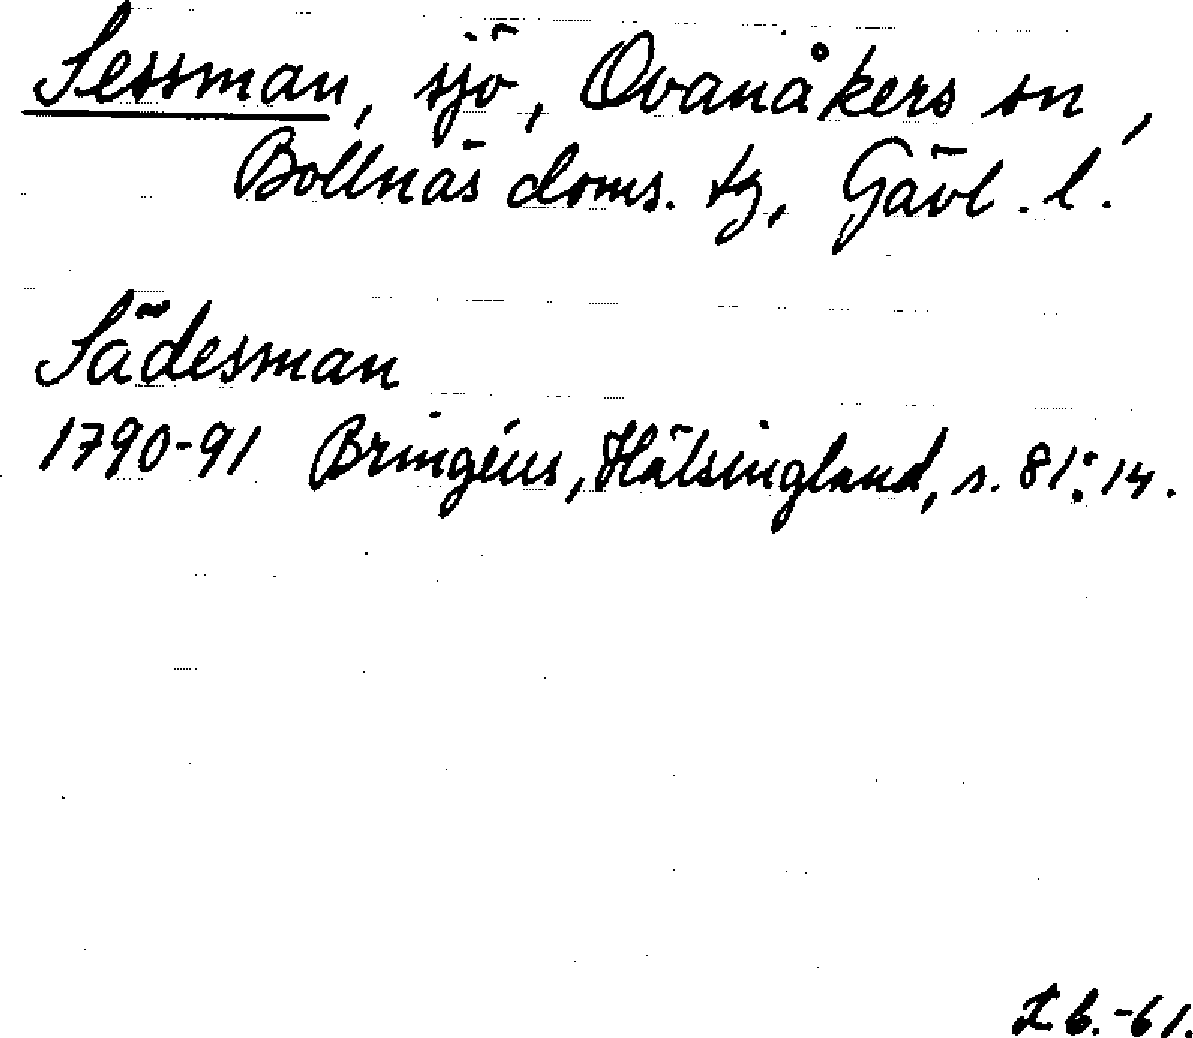 Sessman, sjö, Ovanåkers sn,
Bollnäs doms. tg, Gävl. l.
Sädesman
1790-91 Bringéus, Hälsingland, s. 81:14.
Lb.-61.